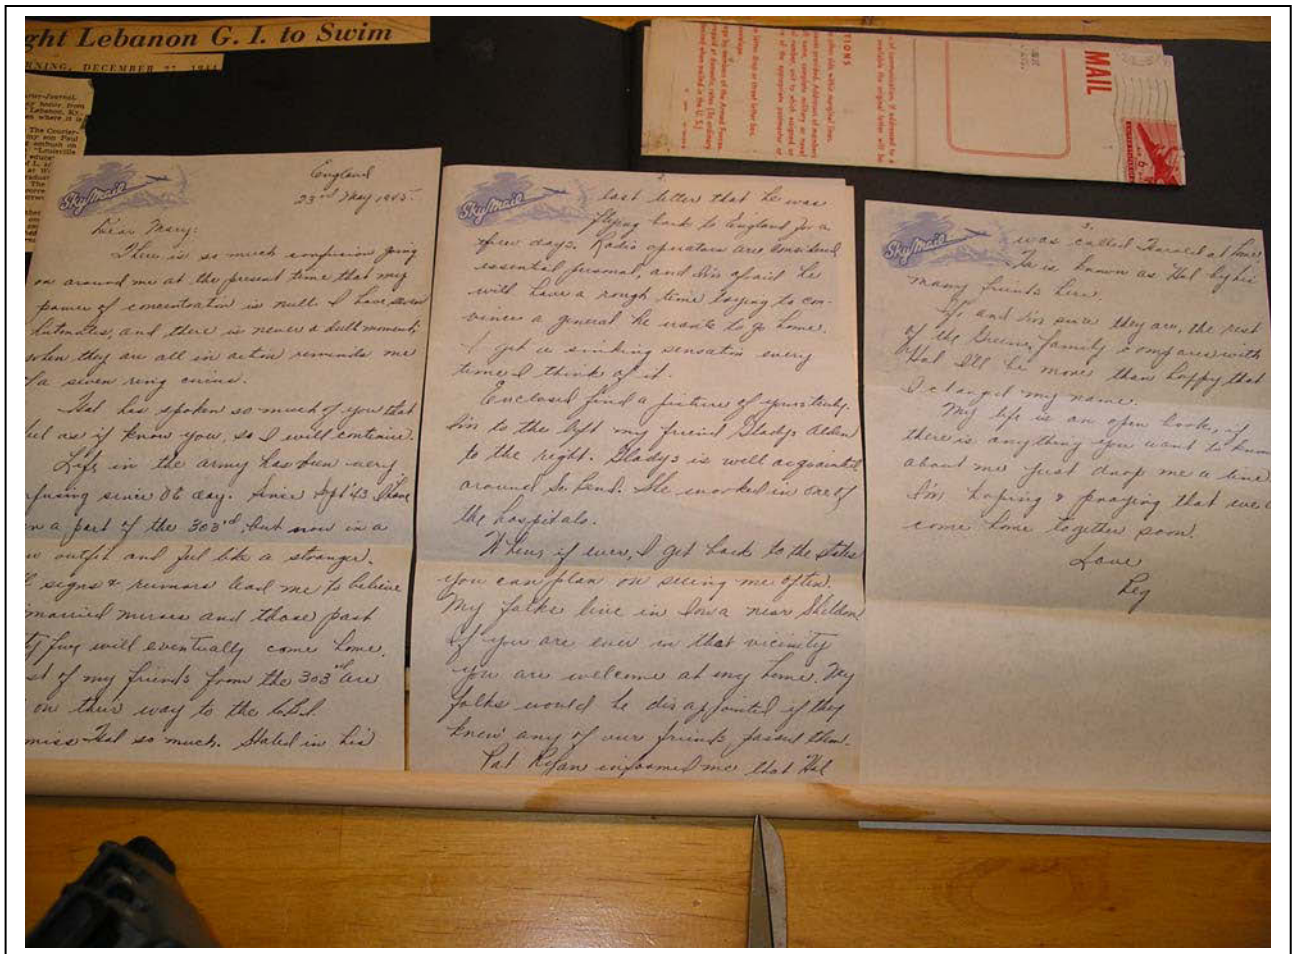 ght Lebanon G. I. to Swim
RNING, DECEMBER 27, 1944
MAIL
SkyMail
England
23rd May 1945.
Dear Mary:
There is so much confusion going
on around me at the present time that my
power of concentration is null. I have seven
hutmates, and there is never a dull moment;
when they are all in action reminds me
of a seven ring circus.
Hal has spoken so much of you that
feel as if know you, so I will continue.
Life in the army has been very
fusing since VE day. Since Sept 43 I have
n a part of the 303rd, but now in a
w outfit and feel like a stranger.
l signs & rumors lead me to believe
married nurses and those past
ty five will eventually come home.
st of my friends from the 303rd are
on their way to the C.B.I.
miss Hal so much. Stated in his
SkyMail
2.
last letter that he was
flying back to England for a
few days. Radio operators are considered
essential personal, and I'm afraid he
will have a rough time trying to con-
vince a general he wants to go home.
I get a sinking sensation every
time I think of it.
Enclosed find a picture of yours truly.
I'm to the left my friend Gladys Alden
to the right. Gladys is well acquainted
around So. Bend. She worked in one of
the hospitals.
When, if ever, I get back to the states
you can plan on seeing me often.
My folks live in Iowa near Sheldon
If you are ever in that vicinity
you are welcome at my home. My
folks would be disappointed if they
knew any of our friends passed them.
Pat Ryan informed me that Hal
SkyMail
3.
was called Harold at home.
He is known as Hal by his
many friends here.
If and I'm sure they are, the rest
of the Greene family compares with
Hal I'll be more than happy that
I changed my name.
My life is an open book, if
there is anything you want to know
about me just drop me a line
I'm hoping & praying that we
come home together soon.
Love
Peg